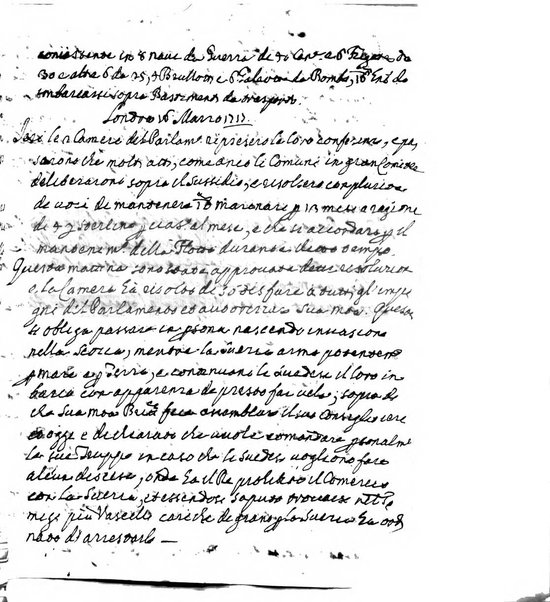 consistente in 8 nave di Guerra de 70 Can.e a 6 Fregate da
30 e altre 6 da 25, 7 Brulloti e 6 Palandre da Bombe, 16 Ent. da
imbarcarsi sopra Bastimenti da trasporto
Londra 16 Marzo 1717.
le 2 Camere del Parlam.to ripresero le loro conferenze, e pas
sarono che molti atti, come anco le Comuni in gran Comitato
deliberarono sopra il sussidio, e risolsero con pluralità
de voci di mantenere 10 marinari p 13 mesi a ragione
di 4 sterline p ciasc. al mese, e che si accordarà p il
mantenim.to della Flotta durante detto tempo.
Questa matina sono state approvate dette risolutioni
e la Camera ha risolto di sodisfare a tutti gl'impe
gni del Parlamento et autorizar Sua Mtà. Questa
si obliga passare in p̄sona nascendo invasione
nella Scocia, mentre la Suecia arma potentem.te
p mare e p Terra, e continuano le Suedesi il loro in
barco con apparenza di presto far vela; sopra di
che Sua Mtà Brit.ca fece assemblare il suo Consiglio iere
et ogge e dichiarato che vuole comandare p̄sonalm.te
la sue Truppe in caso che le Suedesi vogliono fare
alcuna discesa, onde ha il Re prohibito il Comercio
con la Suecia, et essendosi saputo trovarsi nel Ta
mige più Vascelli cariche di grano p la Suecia ha ordi
nato d'arrestarle —